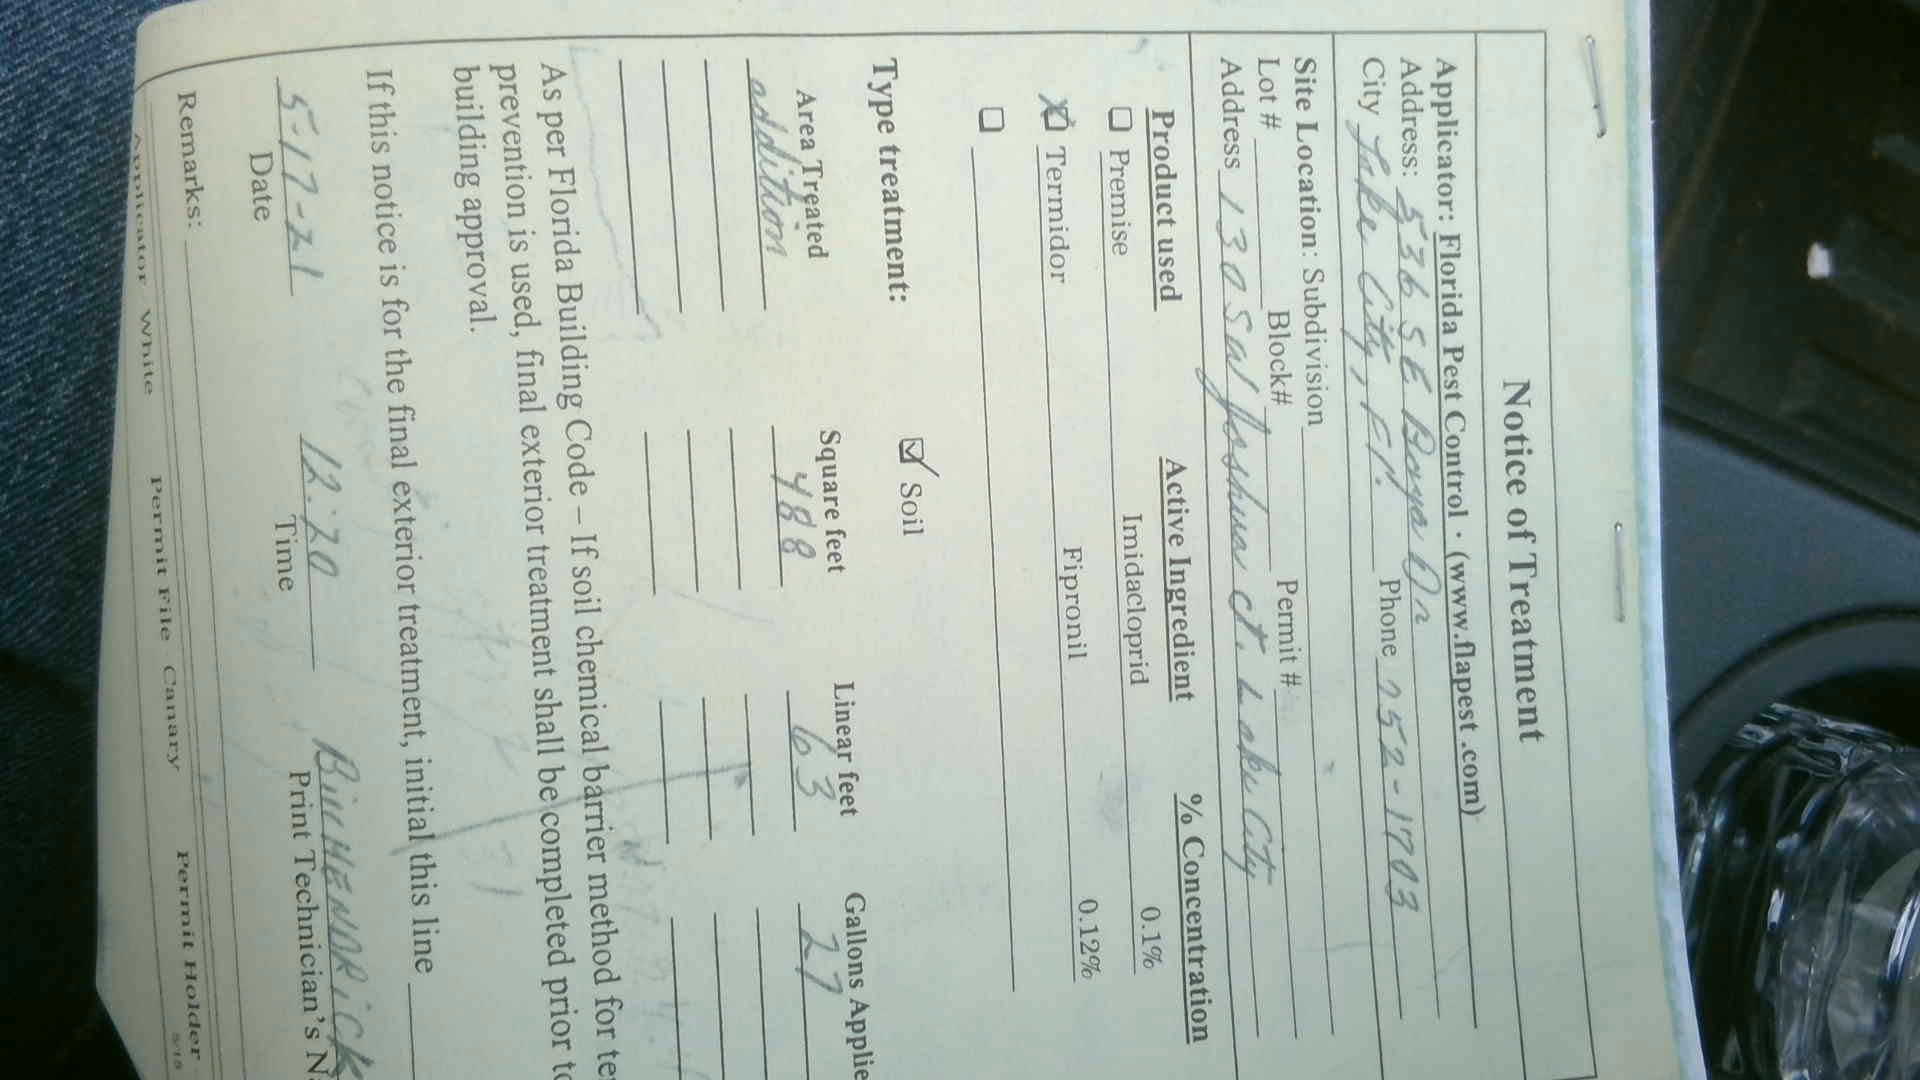 Notice of Treatment
Applicator: Florida Pest Control · (www.flapest.com)
Address: 536 SE Baya Dr
City Lake City, Fl. Phone 752-1703
Site Location: Subdivision
Lot # Block# Permit #
Address 130 SW Joshua ct. Lake City
Product used Active Ingredient % Concentration
Premise Imidacloprid 0.1%
Termidor Fipronil 0.12%
Type treatment: Soil
Area Treated Square feet Linear feet Gallons Applie
addition 488 63 27
As per Florida Building Code – If soil chemical barrier method for te
prevention is used, final exterior treatment shall be completed prior to
building approval.
If this notice is for the final exterior treatment, initial this line
5-17-21 12:20 Bill HENDRICK
Date Time Print Technician's N
Remarks:
Applicator - White Permit File - Canary Permit Holder -